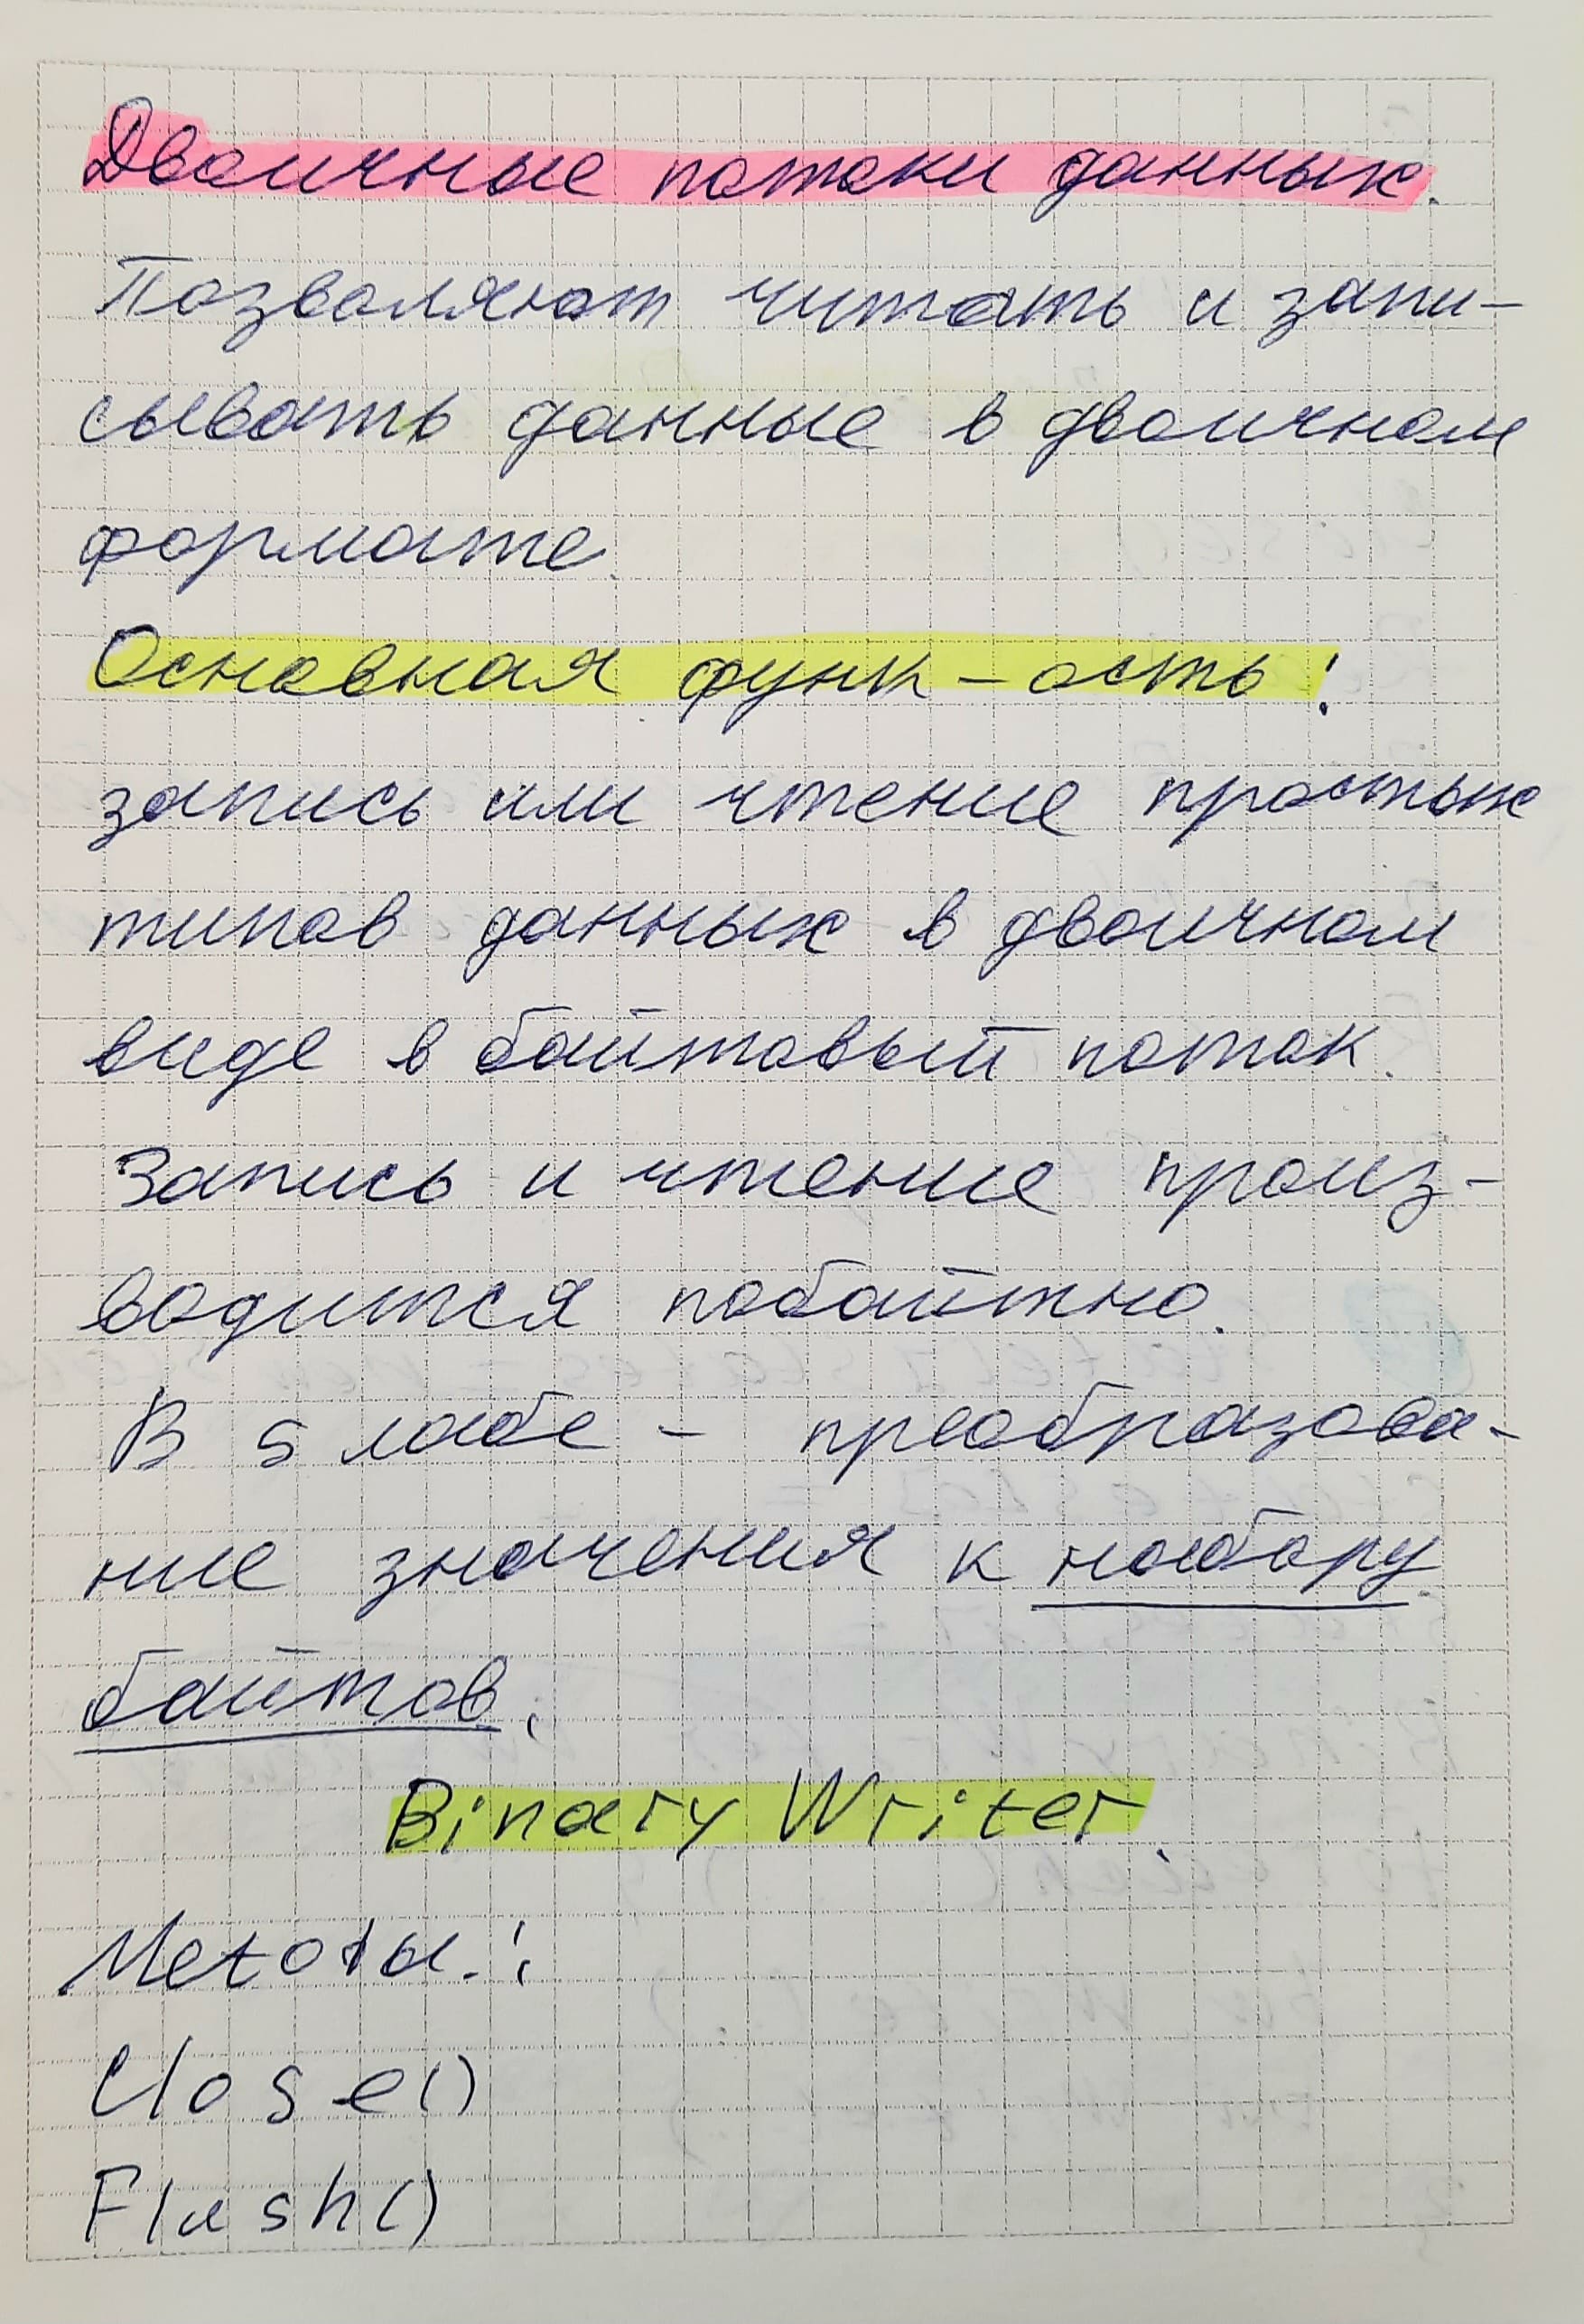 Двоичные потоки данных.
Позволяют читать и запи-
сывать данные в двоичном
формате.
Основная функ-ость:
запись или чтение простых
типов данных в двоичном
виде в байтовый поток.
Запись и чтение произ-
водится побайтно.
В 5 лабе - преобразова-
ние значения к набору
байтов.
Binary Writer.
Методы:
Close()
Flush()